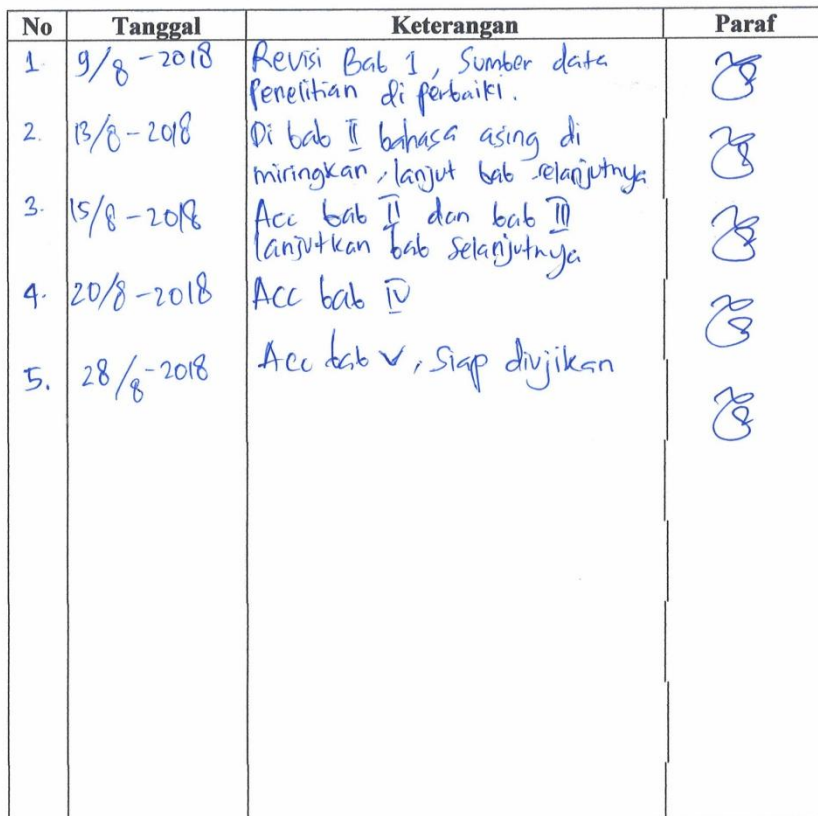 No Tanggal Keterangan Paraf
1. 9/8-2018 Revisi Bab 1, Sumber data
Penelitian di perbaiki.
2. 13/8-2018 Di bab II bahasa asing di
miringkan, lanjut bab selanjutnya
3. 15/8-2018 Acc bab II dan bab III
lanjutkan bab selanjutnya
4. 20/8-2018 Acc bab IV
5. 28/8-2018 Acc bab V, Siap diujikan